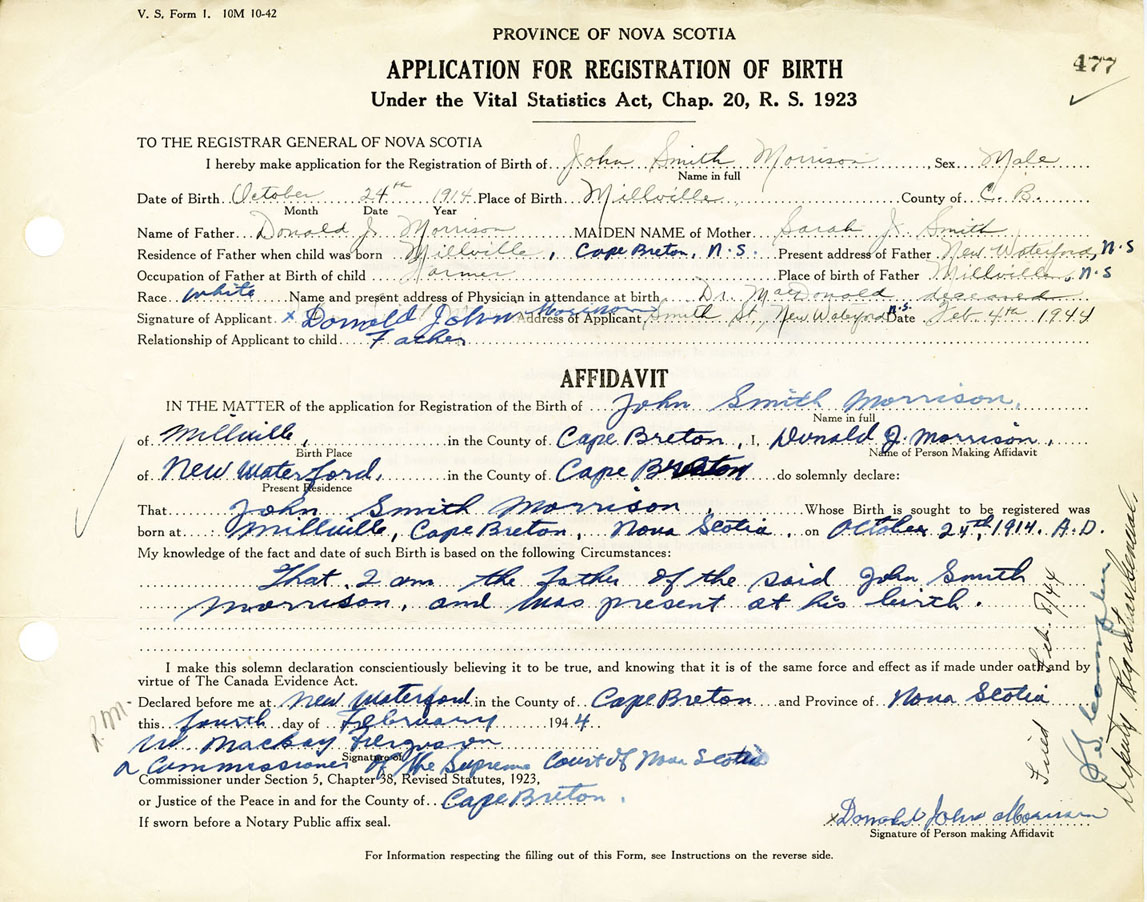 V. S. Form 1. 10M 10-42
PROVINCE OF NOVA SCOTIA
477
APPLICATION FOR REGISTRATION OF BIRTH
Under the Vital Statistics Act, Chap. 20, R. S. 1923
TO THE REGISTRAR GENERAL OF NOVA SCOTIA
I hereby make application for the Registration of Birth of John Smith Morrison Sex Male
Name in full
Date of Birth October 24th 1914 Place of Birth Millville County of C. B.
Month Date Year
Name of Father Donald J. Morrison MAIDEN NAME of Mother Sarah J. Smith
Residence of Father when child was born Millville, Cape Breton, N.S. Present address of Father New Waterford, N.S
Occupation of Father at Birth of child Farmer Place of birth of Father Millville, N.S
Race White Name and present address of Physician in attendance at birth Dr. MacDonald deceased
Signature of Applicant x Donald John Morrison Address of Applicant Smith St, New Waterford N.S. Date Feb. 4th 1944
Relationship of Applicant to child Father
AFFIDAVIT
IN THE MATTER of the application for Registration of the Birth of John Smith Morrison.
Name in full
of Millville, in the County of Cape Breton, I, Donald J. Morrison,
Birth Place Name of Person Making Affidavit
of New Waterford, in the County of Cape Breton do solemnly declare:
Present Residence
That John Smith Morrison, Whose Birth is sought to be registered was
born at Millville, Cape Breton, Nova Scotia, on October 24th, 1914. A.D.
My knowledge of the fact and date of such Birth is based on the following Circumstances:
That I am the father of the said John Smith
Morrison, and was present at his birth.
I make this solemn declaration conscientiously believing it to be true, and knowing that it is of the same force and effect as if made under oath and by
virtue of The Canada Evidence Act.
Declared before me at New Waterford in the County of Cape Breton and Province of Nova Scotia
this fourth day of February 1944.
W. Mackay Ferguson
Signature of
A Commissioner of the Supreme Court of Nova Scotia
Commissioner under Section 5, Chapter 38, Revised Statutes, 1923,
or Justice of the Peace in and for the County of Cape Breton.
If sworn before a Notary Public affix seal.
x Donald John Morrison
Signature of Person making Affidavit
For Information respecting the filling out of this Form, see Instructions on the reverse side.
Filed Feb. 8/44
Deputy Registrar General